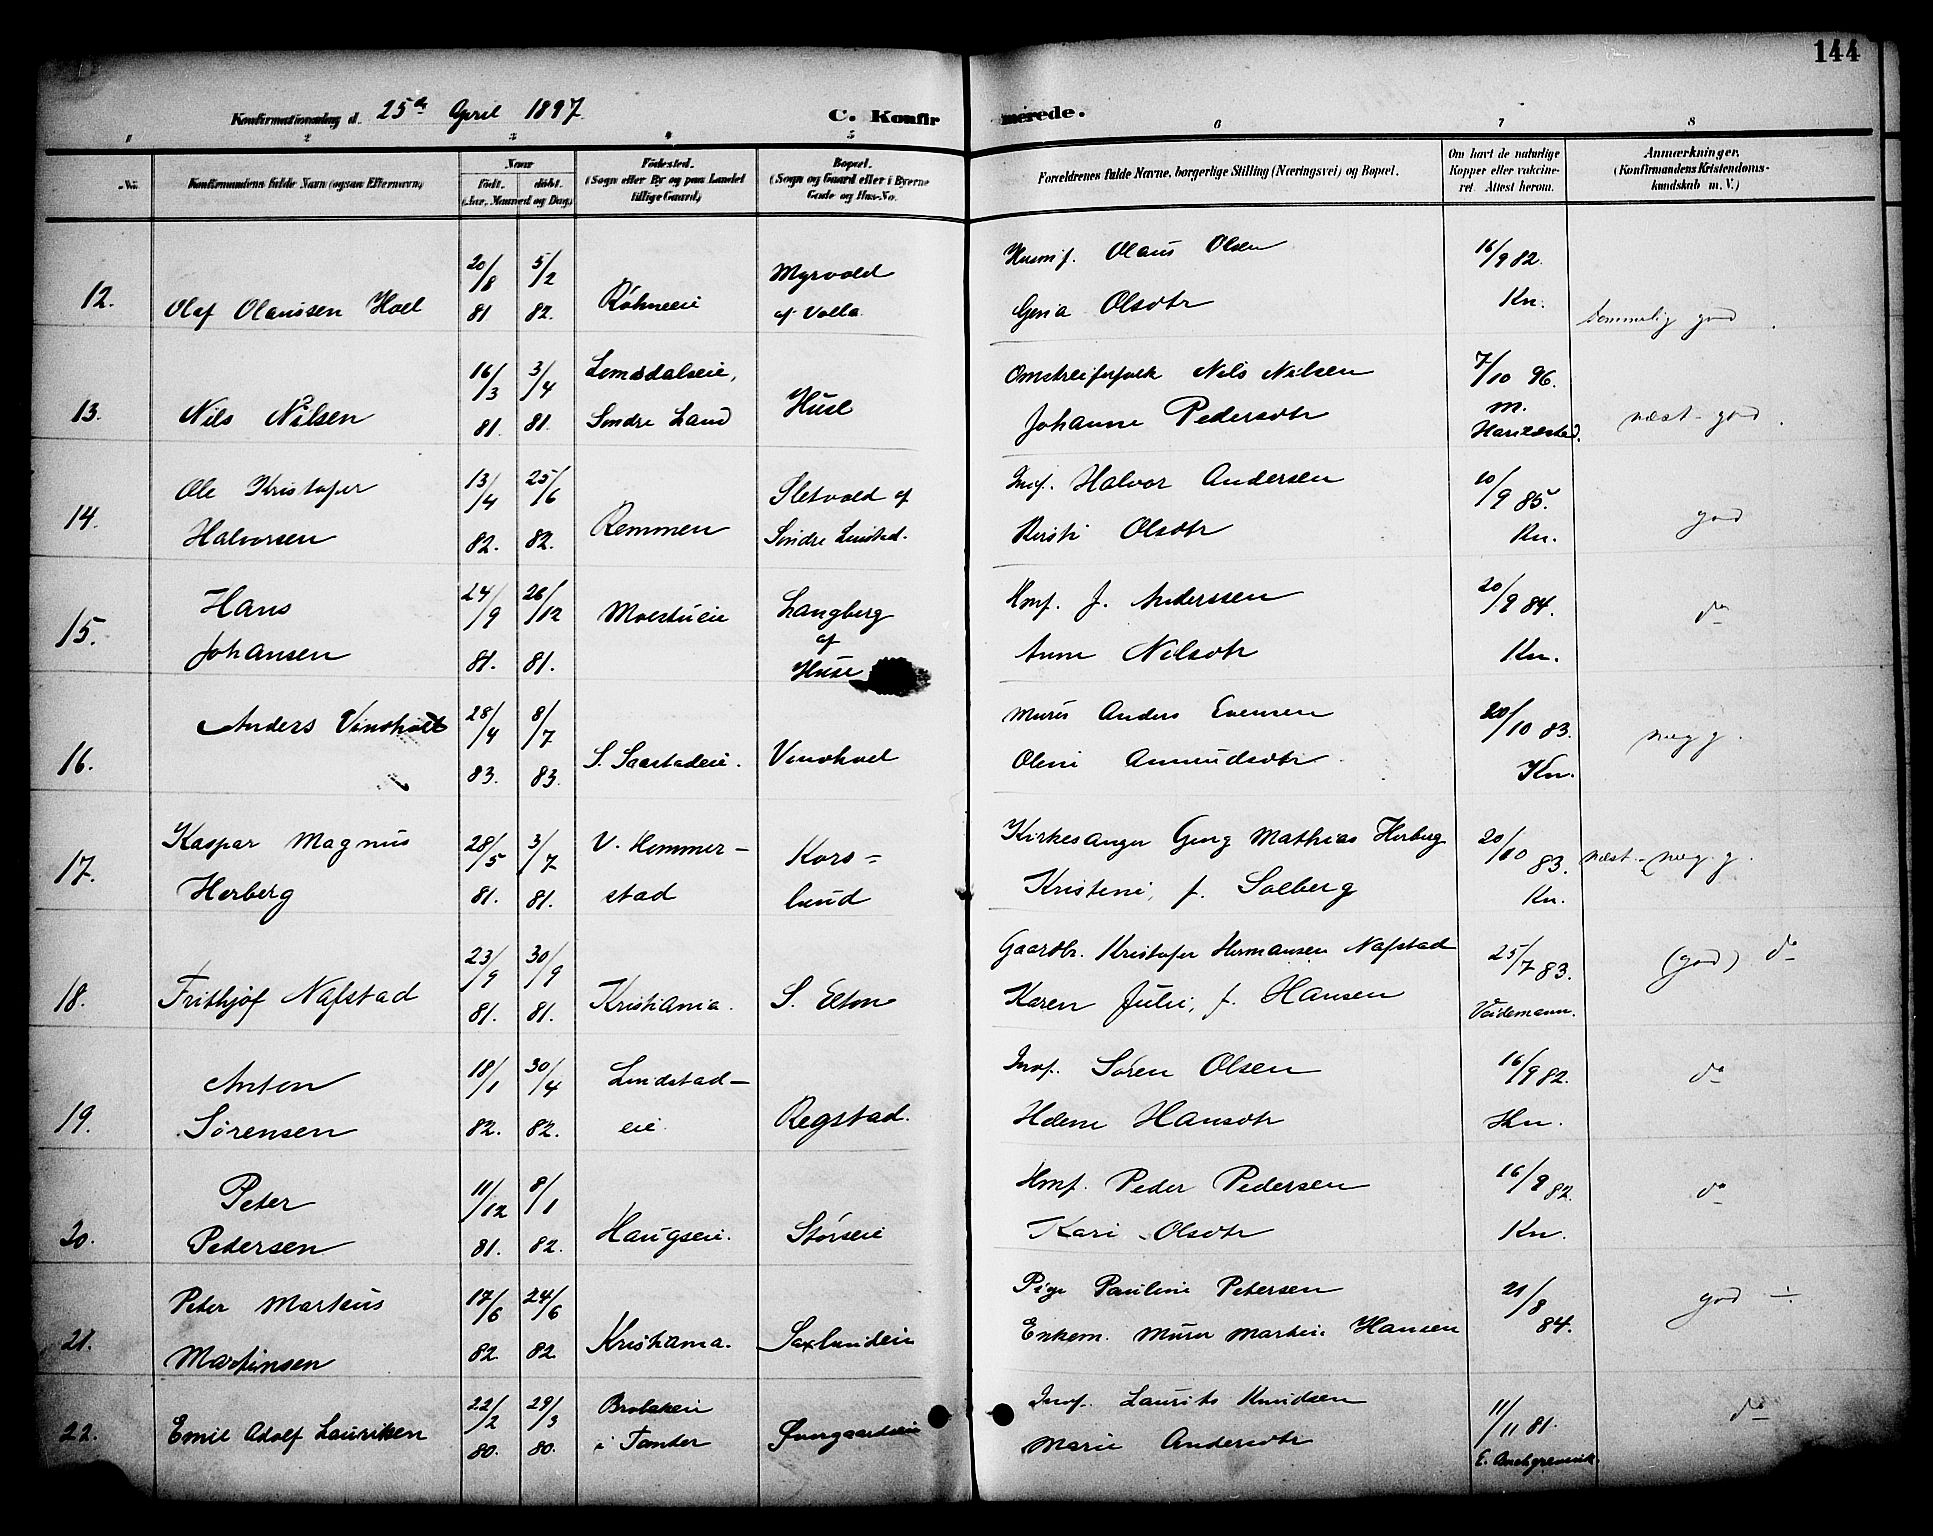 144
Konfirmationsdag d. 25de April 1897.
C. Konfirmerede.
1 2 3 4 5 6 7 8
No.
Konfirmandens fulde Navn (ogsaa Efternavn).
Naar
født. døbt.
(Aar, Maaned og Dag.)
Fødested.
(Sogn eller By og paa Landet
tillige Gaard.)
Bopæl.
(Sogn og Gaard eller i Byerne
Gade og Hus-No.
Forældrenes fulde Navne, borgerlige Stilling (Næringsvei) og Bopæl.
Om havt de naturlige
Kopper eller vakcine-
ret. Attest herom.
Anmærkninger.
(Konfirmandens Kristendoms-
kundskab m. V.)
20/8 5/2 Myrvold Husmf. Olaus Olsen 16/9 82.
12. Olaf Olaussen Hoel 81 82. Røhneeie af Volla Olsdtr Kn. temmelig god.
16/3 3/4 Lomsdalseie, Omstreiferfolk Nils Nilsen 7/10 96.
13. Nils Nilsen 81. 81. Søndre Land Huse Johanne Pedersdtr m. næst-god.
14. Ole Kristofer 13/4 25/6 Sletvold af Inds. Halvor Andersen 10/9 85.
Halvorsen 82. 82. Remmen Søndre Linstad. Kirsti Olsdtr Kn. god
15. Hans 24/9 26/12 Moestueie Langberg Hmf. J. Anderssen 20/9 84. do
af
Johansen 81. 81. Huse Anne Nilsdtr Kn.
Anders 28/4 8/7 Murer Anders Evensen 20/10 83.
16. 83. 83. S. Saastadeie. Oline Amundsdtr Kn. meg g.
17. Kaspar Magnus 28/5 3/7 V. Hemmer- Kors- Kirkesanger Georg Mathias Herberg 20/10 83. næst-meg g.
Herberg 81. 81. stad lund Kristine, f. Solberg Kn.
23/9 30/9 Gaardbr. Kristofer Hermansen Nafstad 25/7 83. (god) do
18. Frithjof Nafstad 81. 81. Kristiania. S. Elton Karen Julie, f. Hansen Voidemann.
19. Anton 18/1 30/4 Lindstad- Inds. Søren Olsen 16/9 82. do
Sørensen 82. 82. eie. Røgstad. Helene Hansdtr Kn.
20. Peter 11/12 8/1 Hmf. Peder Pedersen 16/9 82. do
Pedersen 81. 82. Haugseie. Størseie Kari Olsdtr Kn.
21. Peter Marteus 17/6 24/6 Pige Pauline Petersen 21/8 84. god ÷
Martinsen 82. 82. Kristiania. Saxlundeie Enkem. Murer Martin Hansen
22/2 29/3 Inds. Laurits Knudsen 11/11 81.
22. Emil Adolf Lauritsen 80. 80. i Tomter Marie Andersdtr do